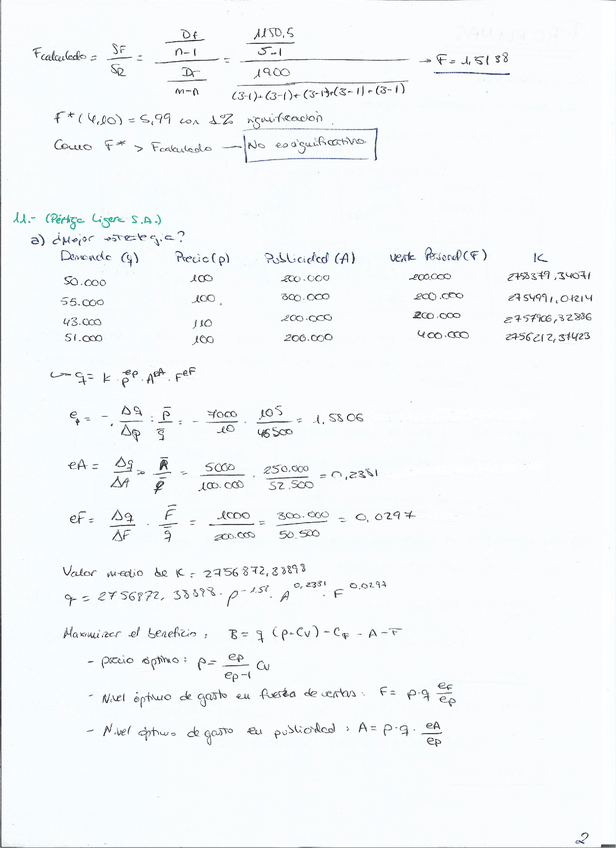 Fcalculado = SF/SR = (DF/(n-1))/(Dr/(m-n)) = (1150,5/(5-1))/(1900/((3-1)+(3-1)+(3-1)+(3-1)+(3-1))) → F = 1,5138
F*(4,10) = 5,99 con 1% significación.
Como F* > Fcalculado → No es significativo
11.- (Pértiga Ligera S.A.)
a) ¿Mejor estrategia?
Demanda (q) Precio (p) Publicidad (A) Venta Personal (F) K
50.000 100 200.000 200.000 2758379,34071
55.000 100. 300.000 200.000 2754991,01214
43.000 110 200.000 200.000 2757906,32836
51.000 100 200.000 400.000 2756212,31423
↳ q = K · p^ep · A^eA · F^eF
ep = - Δq/Δp : p̄/q̄ = - -7000/10 · 105/46500 = 1,5806
eA = Δq/ΔA · Ā/q̄ = 5000/100.000 · 250.000/52.500 = 0,2381
eF = Δq/ΔF · F̄/q̄ = 1000/200.000 = 300.000/50.500 = 0,0297
Valor medio de K = 2756872,38898
q = 2756872,38898 · p^-1,58 · A^0,2381 · F^0,0297
Maximizar el beneficio: B = q (p-Cv) - CF - A - F
- Precio óptimo: p = ep/(ep-1) Cv
- Nivel óptimo de gasto en fuerza de ventas: F = p·q eF/ep
- Nivel óptimo de gasto en publicidad: A = p·q · eA/ep
2